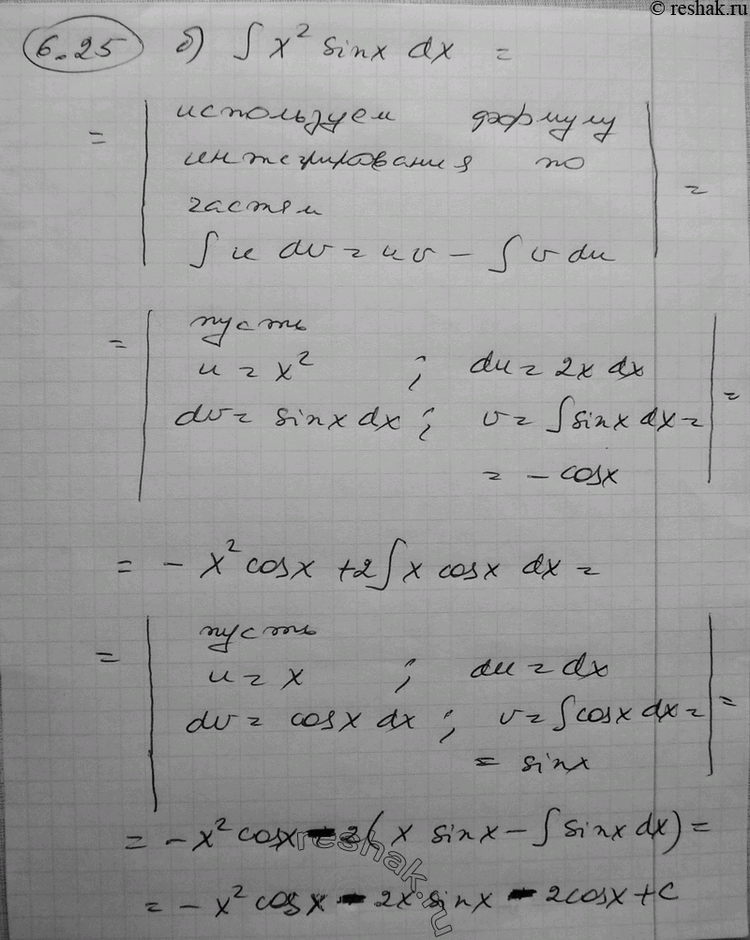 © reshak.ru
6.25 б) ∫ x² sinx dx =
= | используем формулу
интегрирования по
частям
∫ u dv = uv - ∫ v du | =
= | пусть
u = x² ; du = 2x dx
dv = sinx dx ; v = ∫ sinx dx =
= - cosx | =
= - x² cosx + 2∫ x cosx dx =
= | пусть
u = x ; du = dx
dv = cosx dx ; v = ∫ cosx dx =
= sinx | =
= - x² cosx - 2( x sinx - ∫ sinx dx) =
= - x² cosx - 2x sinx - 2cosx + C
reshak.ru